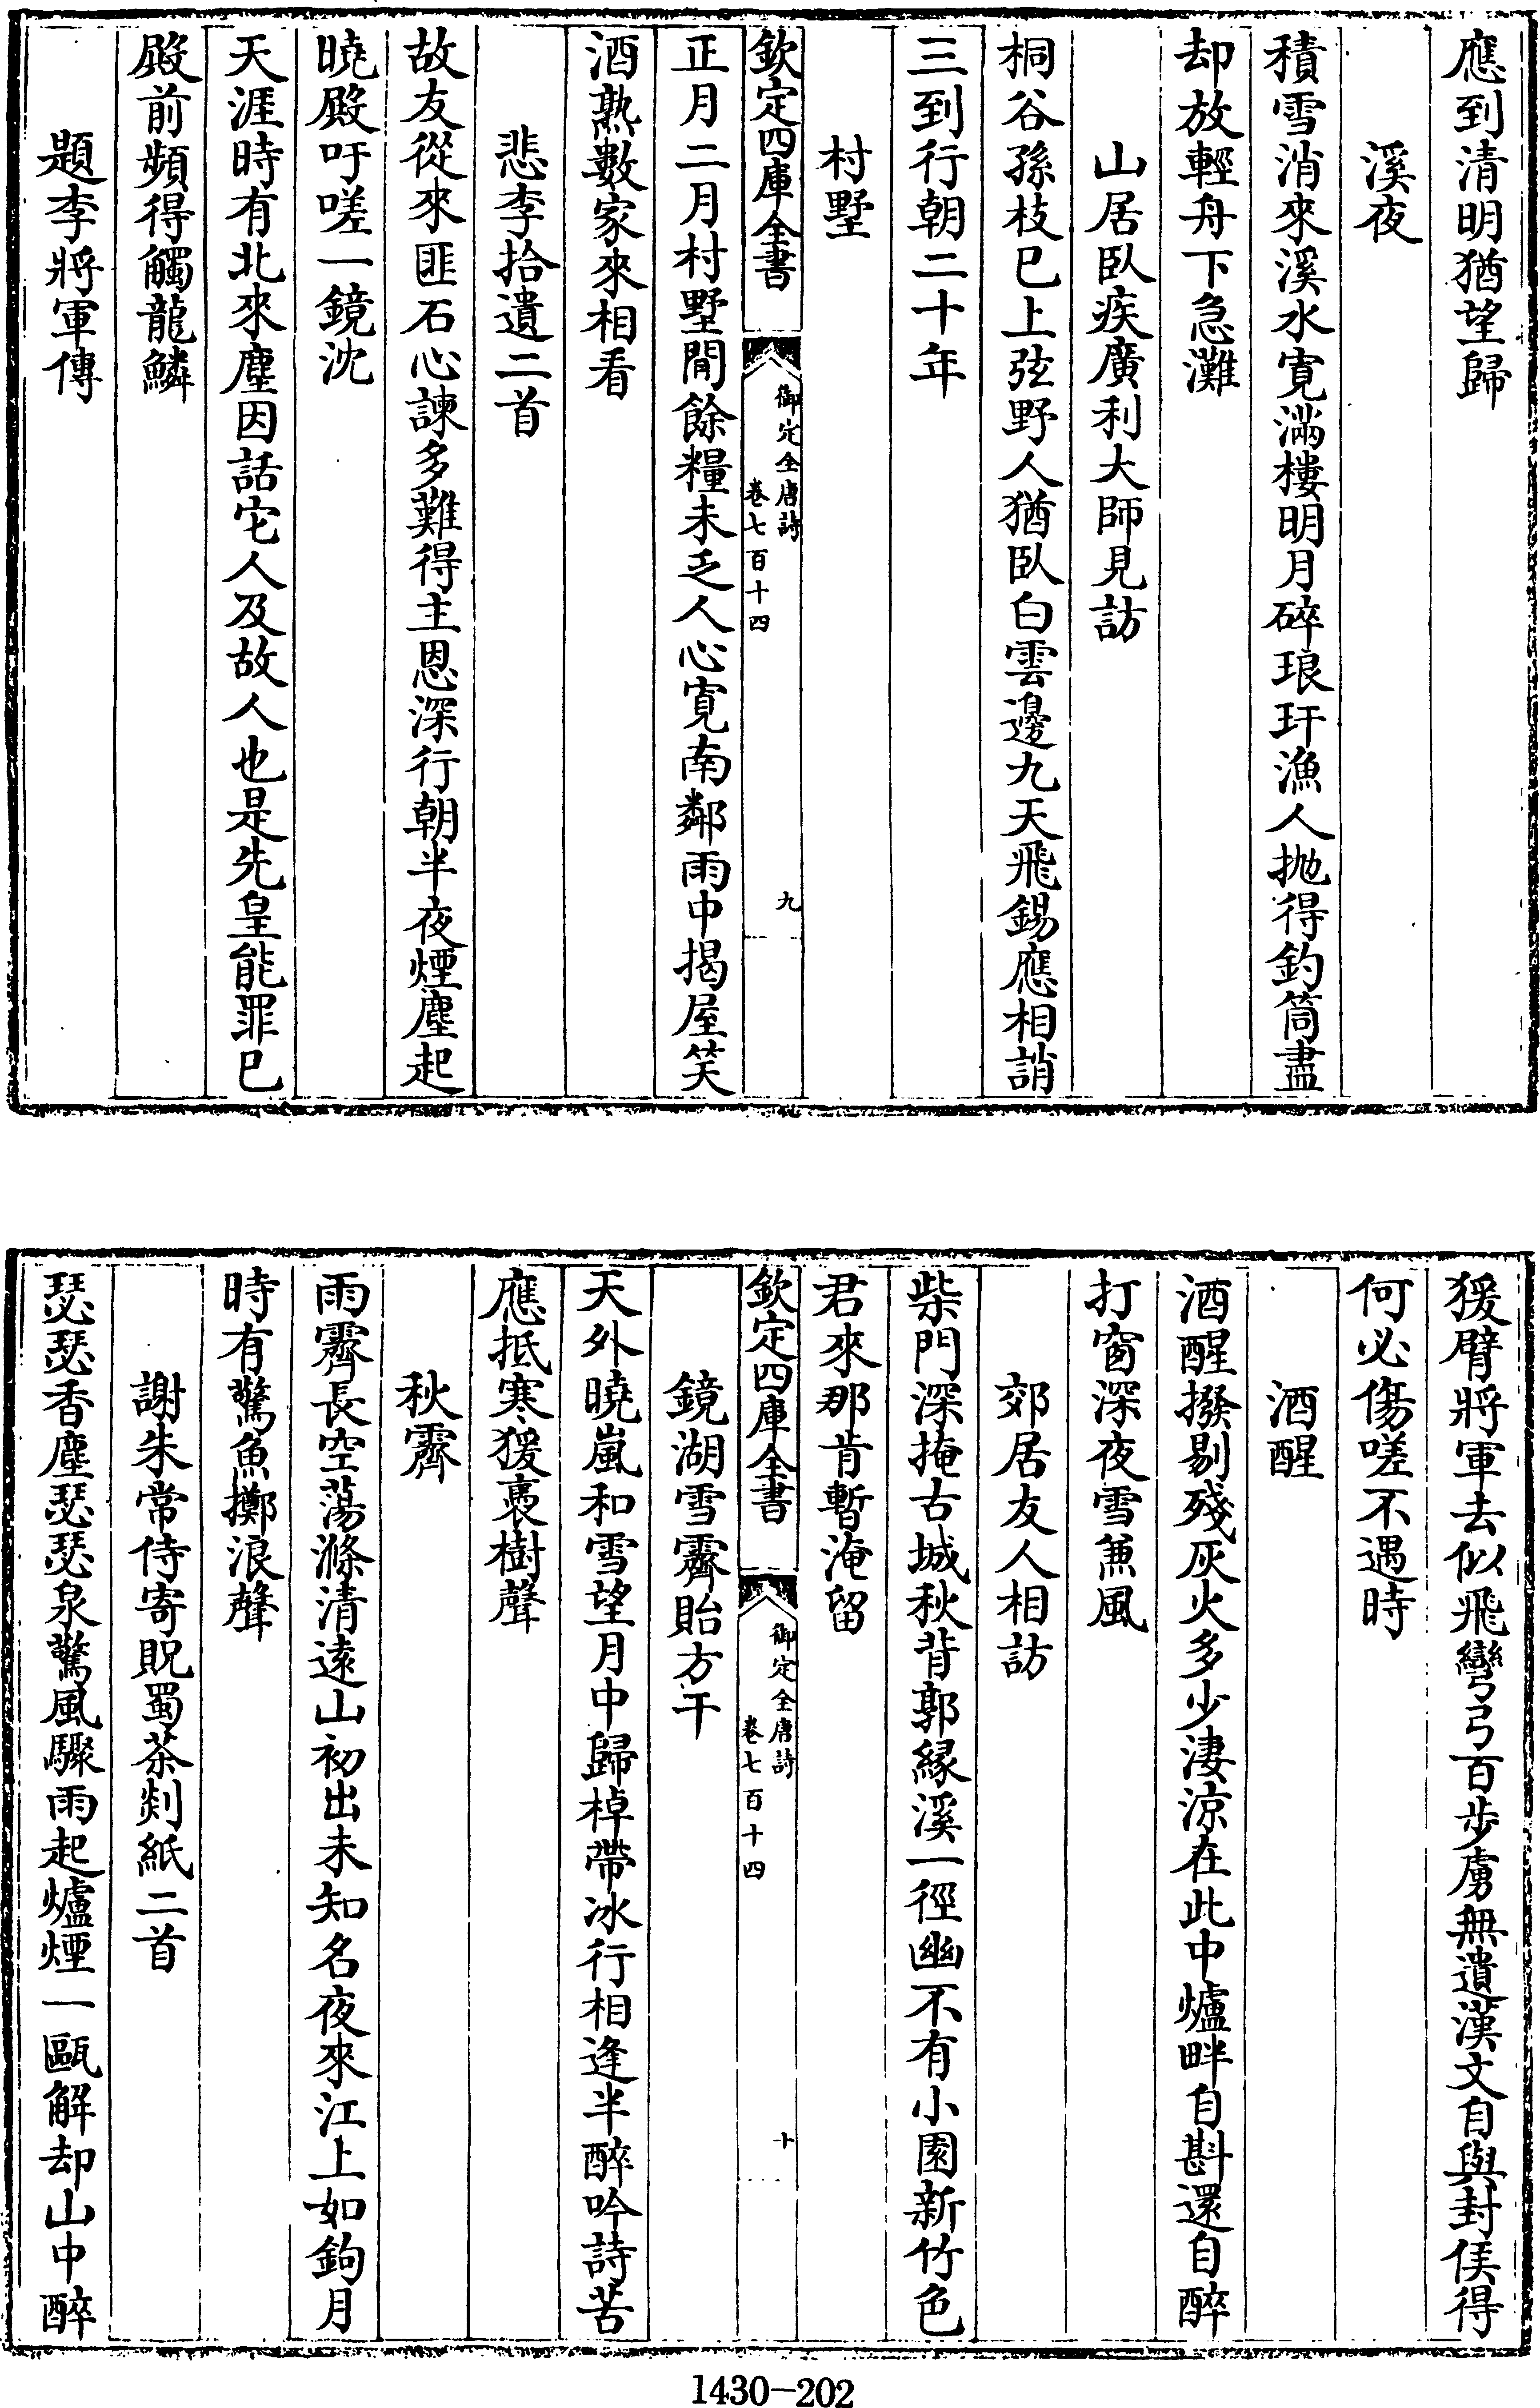 應到清明猶望歸
溪夜
積雪消來溪水寛滿樓明月碎琅玕漁人抛得釣筒盡
却放輕舟下急灘
山居臥疾廣利大師見訪
桐谷孫枝巳上弦野人猶臥白雲邊九天飛錫應相誚
三到行朝二十年
村墅
欽定四庫全書
御定全唐詩
卷七百十四
九
正月二月村墅閒餘糧未乏人心寛南鄰雨中揭屋笑
酒熟數家來相看
悲李拾遺二首
故友從來匪石心諫多難得主恩深行朝半夜煙塵起
曉殿吁嗟一鏡沈
天涯時有北來塵因話它人及故人也是先皇能罪巳
殿前頻得觸龍鱗
題李將軍傳
猨臂將軍去似飛彎弓百步虜無遺漢文自與封侯得
何必傷嗟不遇時
酒醒
酒醒撥剔殘灰火多少淒涼在此中爐畔自斟還自醉
打窗深夜雪兼風
郊居友人相訪
柴門深掩古城秋背郭緣溪一徑幽不有小園新竹色
君來那肯暫淹留
欽定四庫全書
御定全唐詩
卷七百十四
十
鏡湖雪霽貽方干
天外曉嵐和雪望月中歸棹帶冰行相逢半醉吟詩苦
應抵寒猨褭樹聲
秋霽
雨霽長空蕩滌清遠山初出未知名夜來江上如鉤月
時有驚魚擲浪聲
謝朱常侍寄貺蜀茶剡紙二首
瑟瑟香塵瑟瑟泉驚風驟雨起爐煙一甌解却山中醉
1430-202